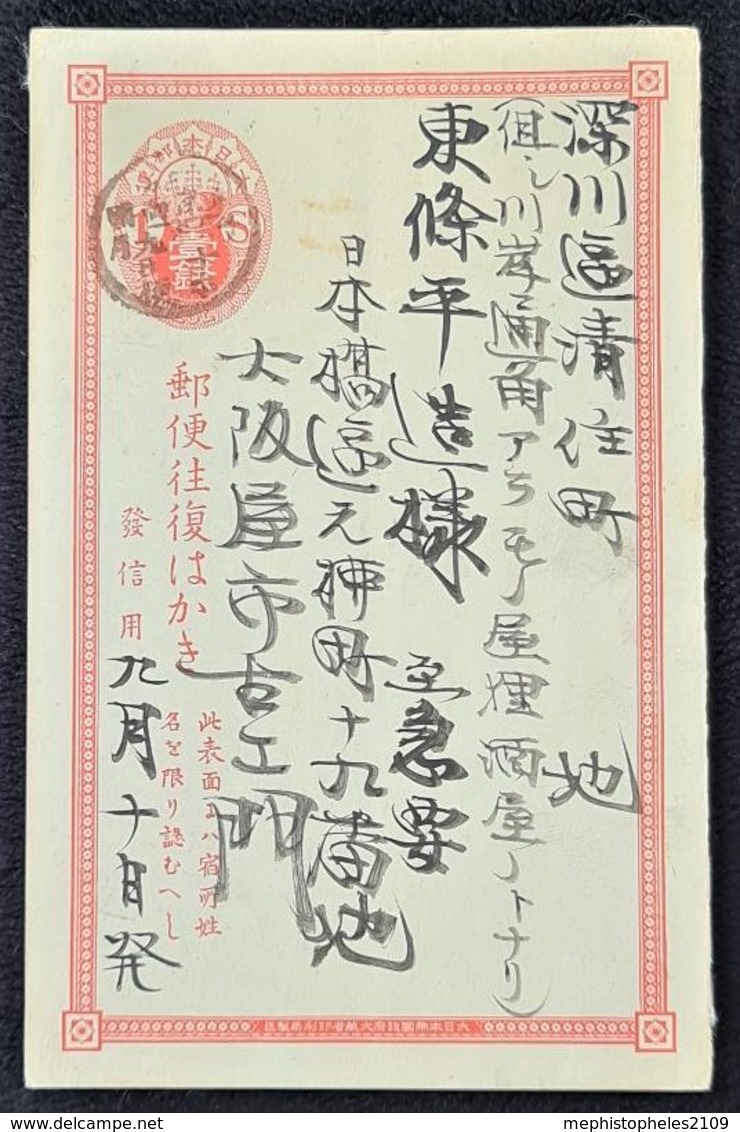 深川區清住町 地
(但シ川岸通角アラモノ屋 酒屋ノトナリ)
東條平造様 至急要
日本橋區元 町十九番地
大阪屋市右エ門
郵便往復はかき
發信用
此表面ニハ宿所姓
名を限り認むへし
九月十日発
大日本郵便
壹錢
1 S
大日本帝國政府大藏省印刷局製造
mephistopheles2109